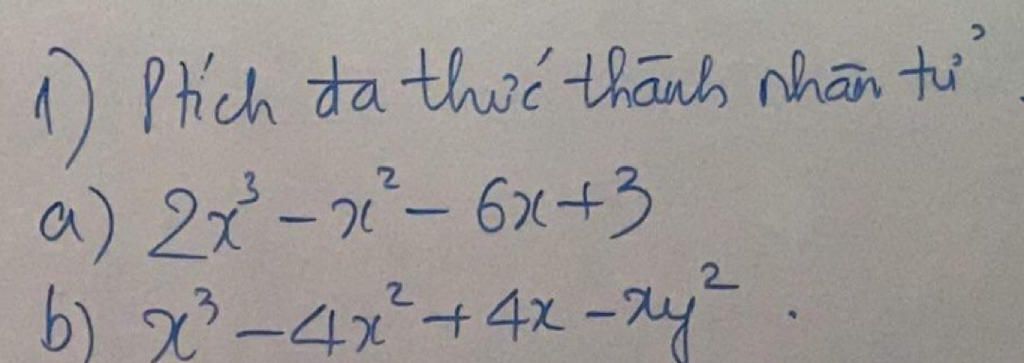 1) Ptích đa thức thành nhân tử.
a) 2x³ – x² – 6x + 3
b) x³ – 4x² + 4x – xy².